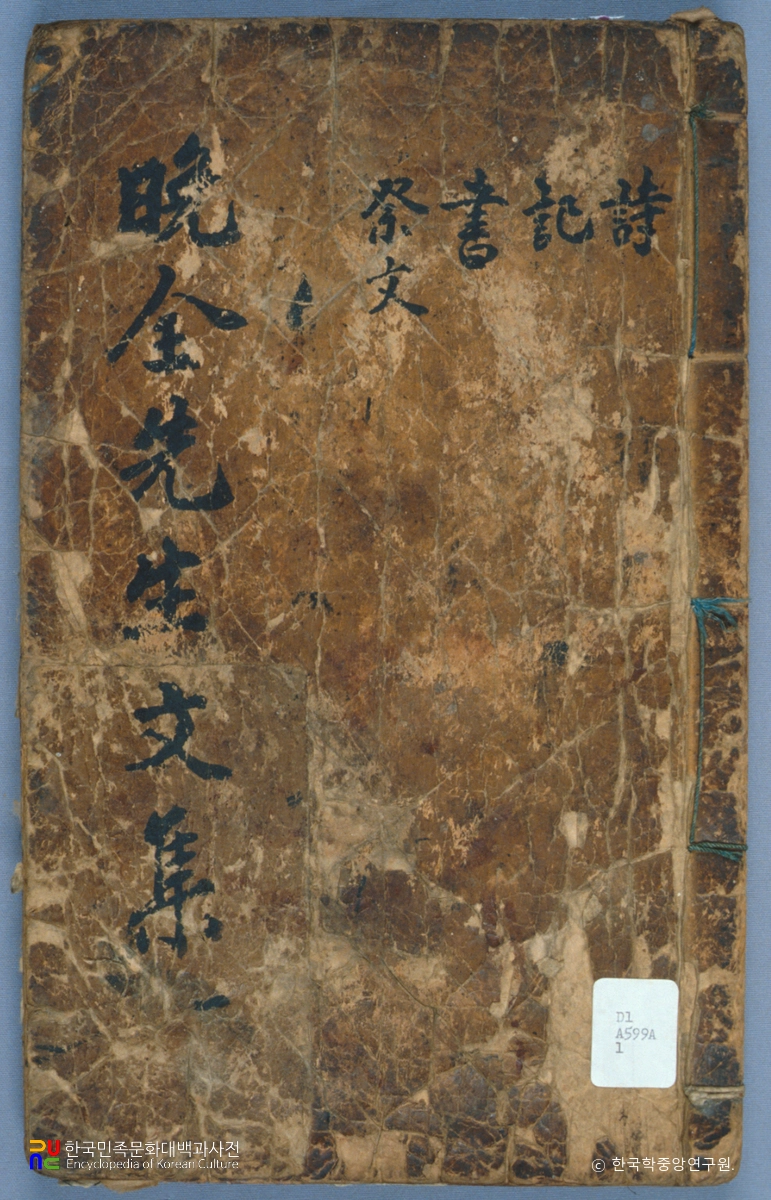 詩
記
書
祭文
晩全先生文集
D1
A599A
1
한국민족문화대백과사전
Encyclopedia of Korean Culture
© 한국학중앙연구원.